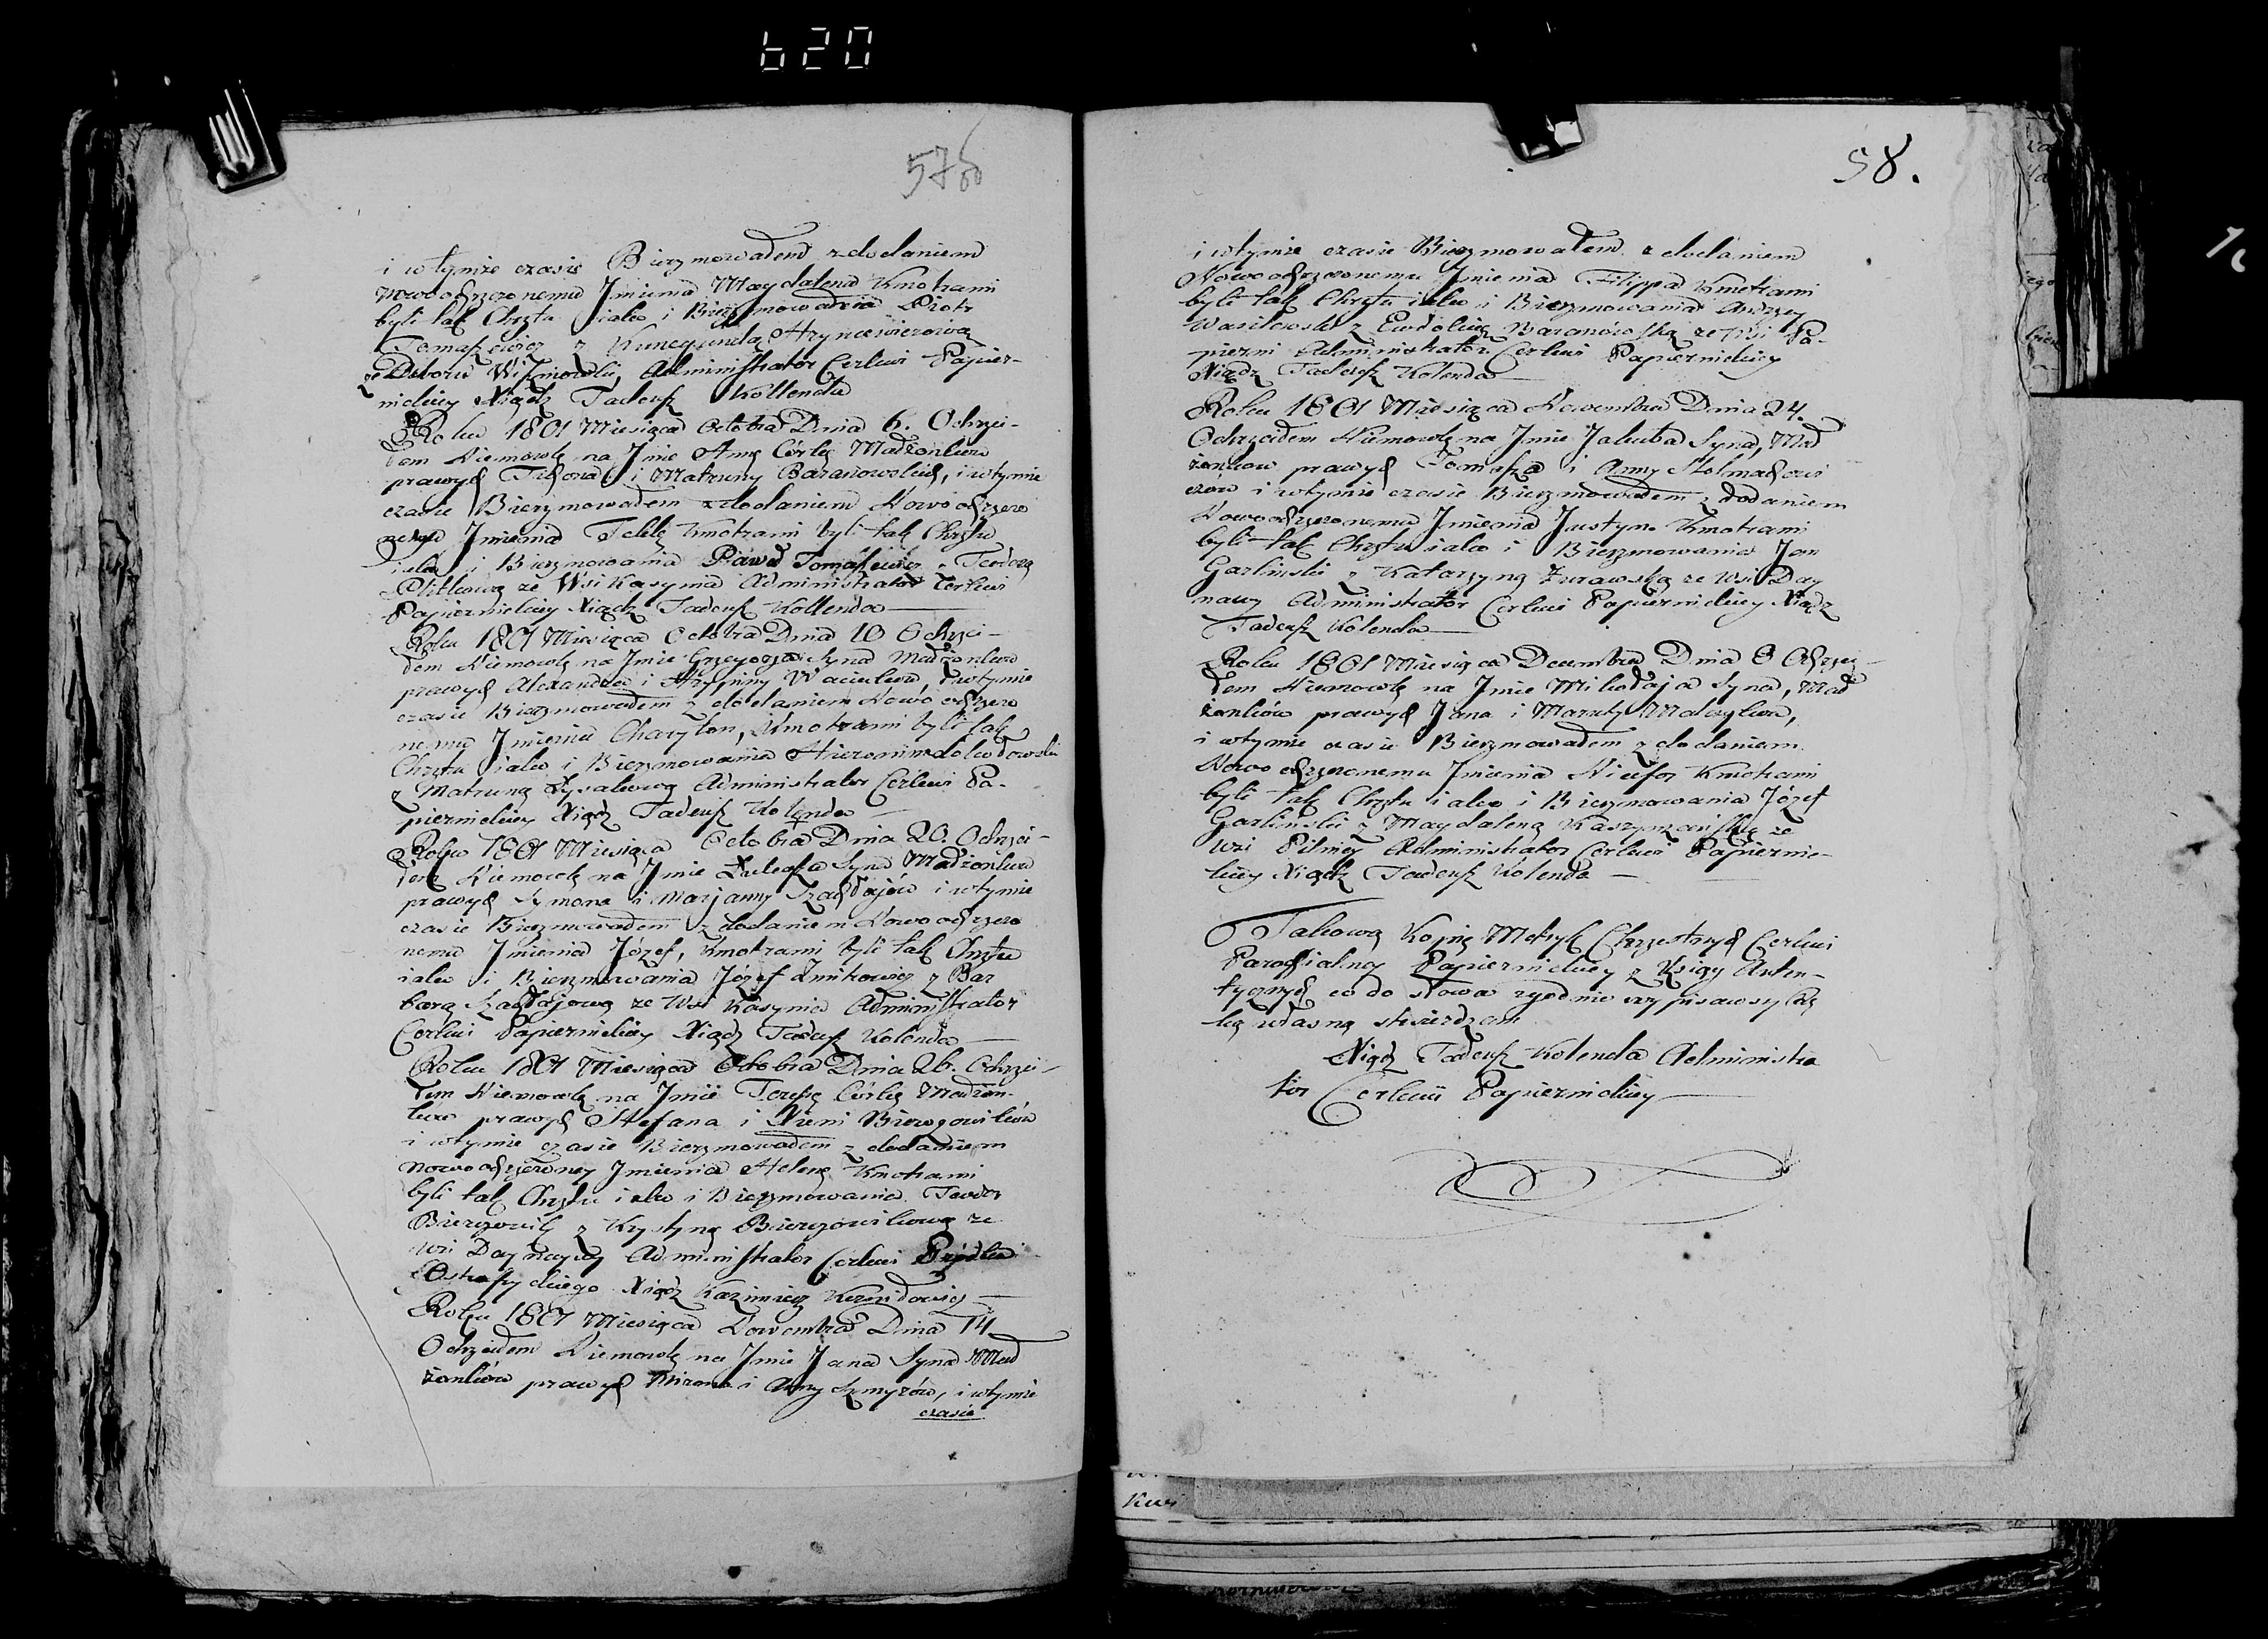 620
57 об
i wtymże czasie Bierzmowałem z dodaniem
nowoochrzczonemu Jmienia Magdalena Kmotrami
byli tak Chrztu jako i Bierzmowania Piotr
Tomaszewicz z Kunegundą Hryncewiczową
ze Dworu Administrator Cerkwi Papier-
nickiey Xiądz Tadeusz Kollenda
Roku 1801 Miesiąca Octobra Dnia 6. Ochrzci-
łem Niemowlę na Jmie Annę Córkę Małżonków
prawych Tichona i Matruny Baranowskich, i wtymże
czasie Bierzmowałem z dodaniem Nowoochrzczo
nemu Jmienia Teklę Kmotrami byli tak Chrztu
jako i Bierzmowania Paweł Tomaszewicz z Teodorą
ze Wsi Kasynia Administrator Cerkwi
Papiernickiey Xiądz Tadeusz Kollenda
Roku 1801 Miesiąca Octobra Dnia 10 Ochrzci-
łem Niemowlę na Jmie Grzegorza Syna Małżonków
prawych Alexandra i Hrypiny, i wtymże
czasie Bierzmowałem z dodaniem Nowo ochrzczo
nemu Jmienia Charyton, Kmotrami byli tak
Chrztu jako i Bierzmowania Hieronim
z Matruną Administrator Cerkwi Pa-
piernickiey Xiądz Tadeusz Kolenda
Roku 1801 Miesiąca Octobra Dnia 20. Ochrzci-
łem Niemowlę na Jmie Syna Małżonków
prawych Symona i Marjanny i wtymże
czasie Bierzmowałem z dodaniem Nowoochrzczo
nemu Jmienia Józef, Kmotrami byli tak Chrztu
jako i Bierzmowania Józef z Bar
barą ze Wsi Kasynia Administrator
Cerkwi Papiernickiey Xiądz Tadeusz Kolenda
Roku 1801 Miesiąca Octobra Dnia 26. Ochrzci-
łem Niemowlę na Jmie Córkę Małżon-
ków prawych Stefana i Xieni
i wtymże czasie Bierzmowałem z dodaniem
nowoochrzczoney Jmienia Helenę Kmotrami
byli tak Chrztu jako i Bierzmowania Teodor
z Krystyną ze
wsi Daynawy Administrator Cerkwi
Xiądz Kazimierz
Roku 1801 Miesiąca Nowembra Dnia 14
Ochrzciłem Niemowlę na Jmie Jana Syna Mał
żonków prawych i Anny, i wtymże
czasie
58.
i wtymże czasie Bierzmowałem z dodaniem
Nowoochrzczonemu Jmienia Filippa Kmotrami
byli tak Chrztu jako i Bierzmowania Andrzey
Wasilewski z Ewdokiją Baranowską ze Wsi Pa-
pierni Administrator Cerkwi Papiernickiey
Xiądz Tadeusz Kolenda
Roku 1801 Miesiąca Nowembra Dnia 24.
Ochrzciłem Niemowlę na Jmie Jakuba Syna, Mał
żonkow prawych Tomasza i Anny Stelmachowi
czów i wtymże czasie Bierzmowałem z dodaniem
Nowoochrzczonemu Jmienia Justyn Kmotrami
byli tak Chrztu jako i Bierzmowania Jan
Garliński z Katarzyną Żurawską ze Wsi Day
nawy Administrator Cerkwi Papiernickiey Xiądz
Tadeusz Kolenda
Roku 1801 Miesiąca Decembra Dnia 8 Ochrzci-
łem Niemowlę na Jmie Mikołaja Syna, Mał
żonków prawych Jana i,
i wtymże czasie Bierzmowałem z dodaniem
Nowo ochrzczonemu Jmienia Nicefor Kmotrami
byli tak Chrztu jako i Bierzmowania Józef
Garliński z Magdaleną ze
wsi Administrator Cerkwi Papiernic-
kiey Xiądz Tadeusz Kolenda
Takową Kopię Metryk Chrzestnych Cerkwi
Parochialney Papiernickiey z Xięgi Auten-
tycznych co do słowa zgodnie wypisawszy Rę
ką własną stwierdzam
Xiądz Tadeusz Kolenda Administra
tor Cerkwi Papiernickiey